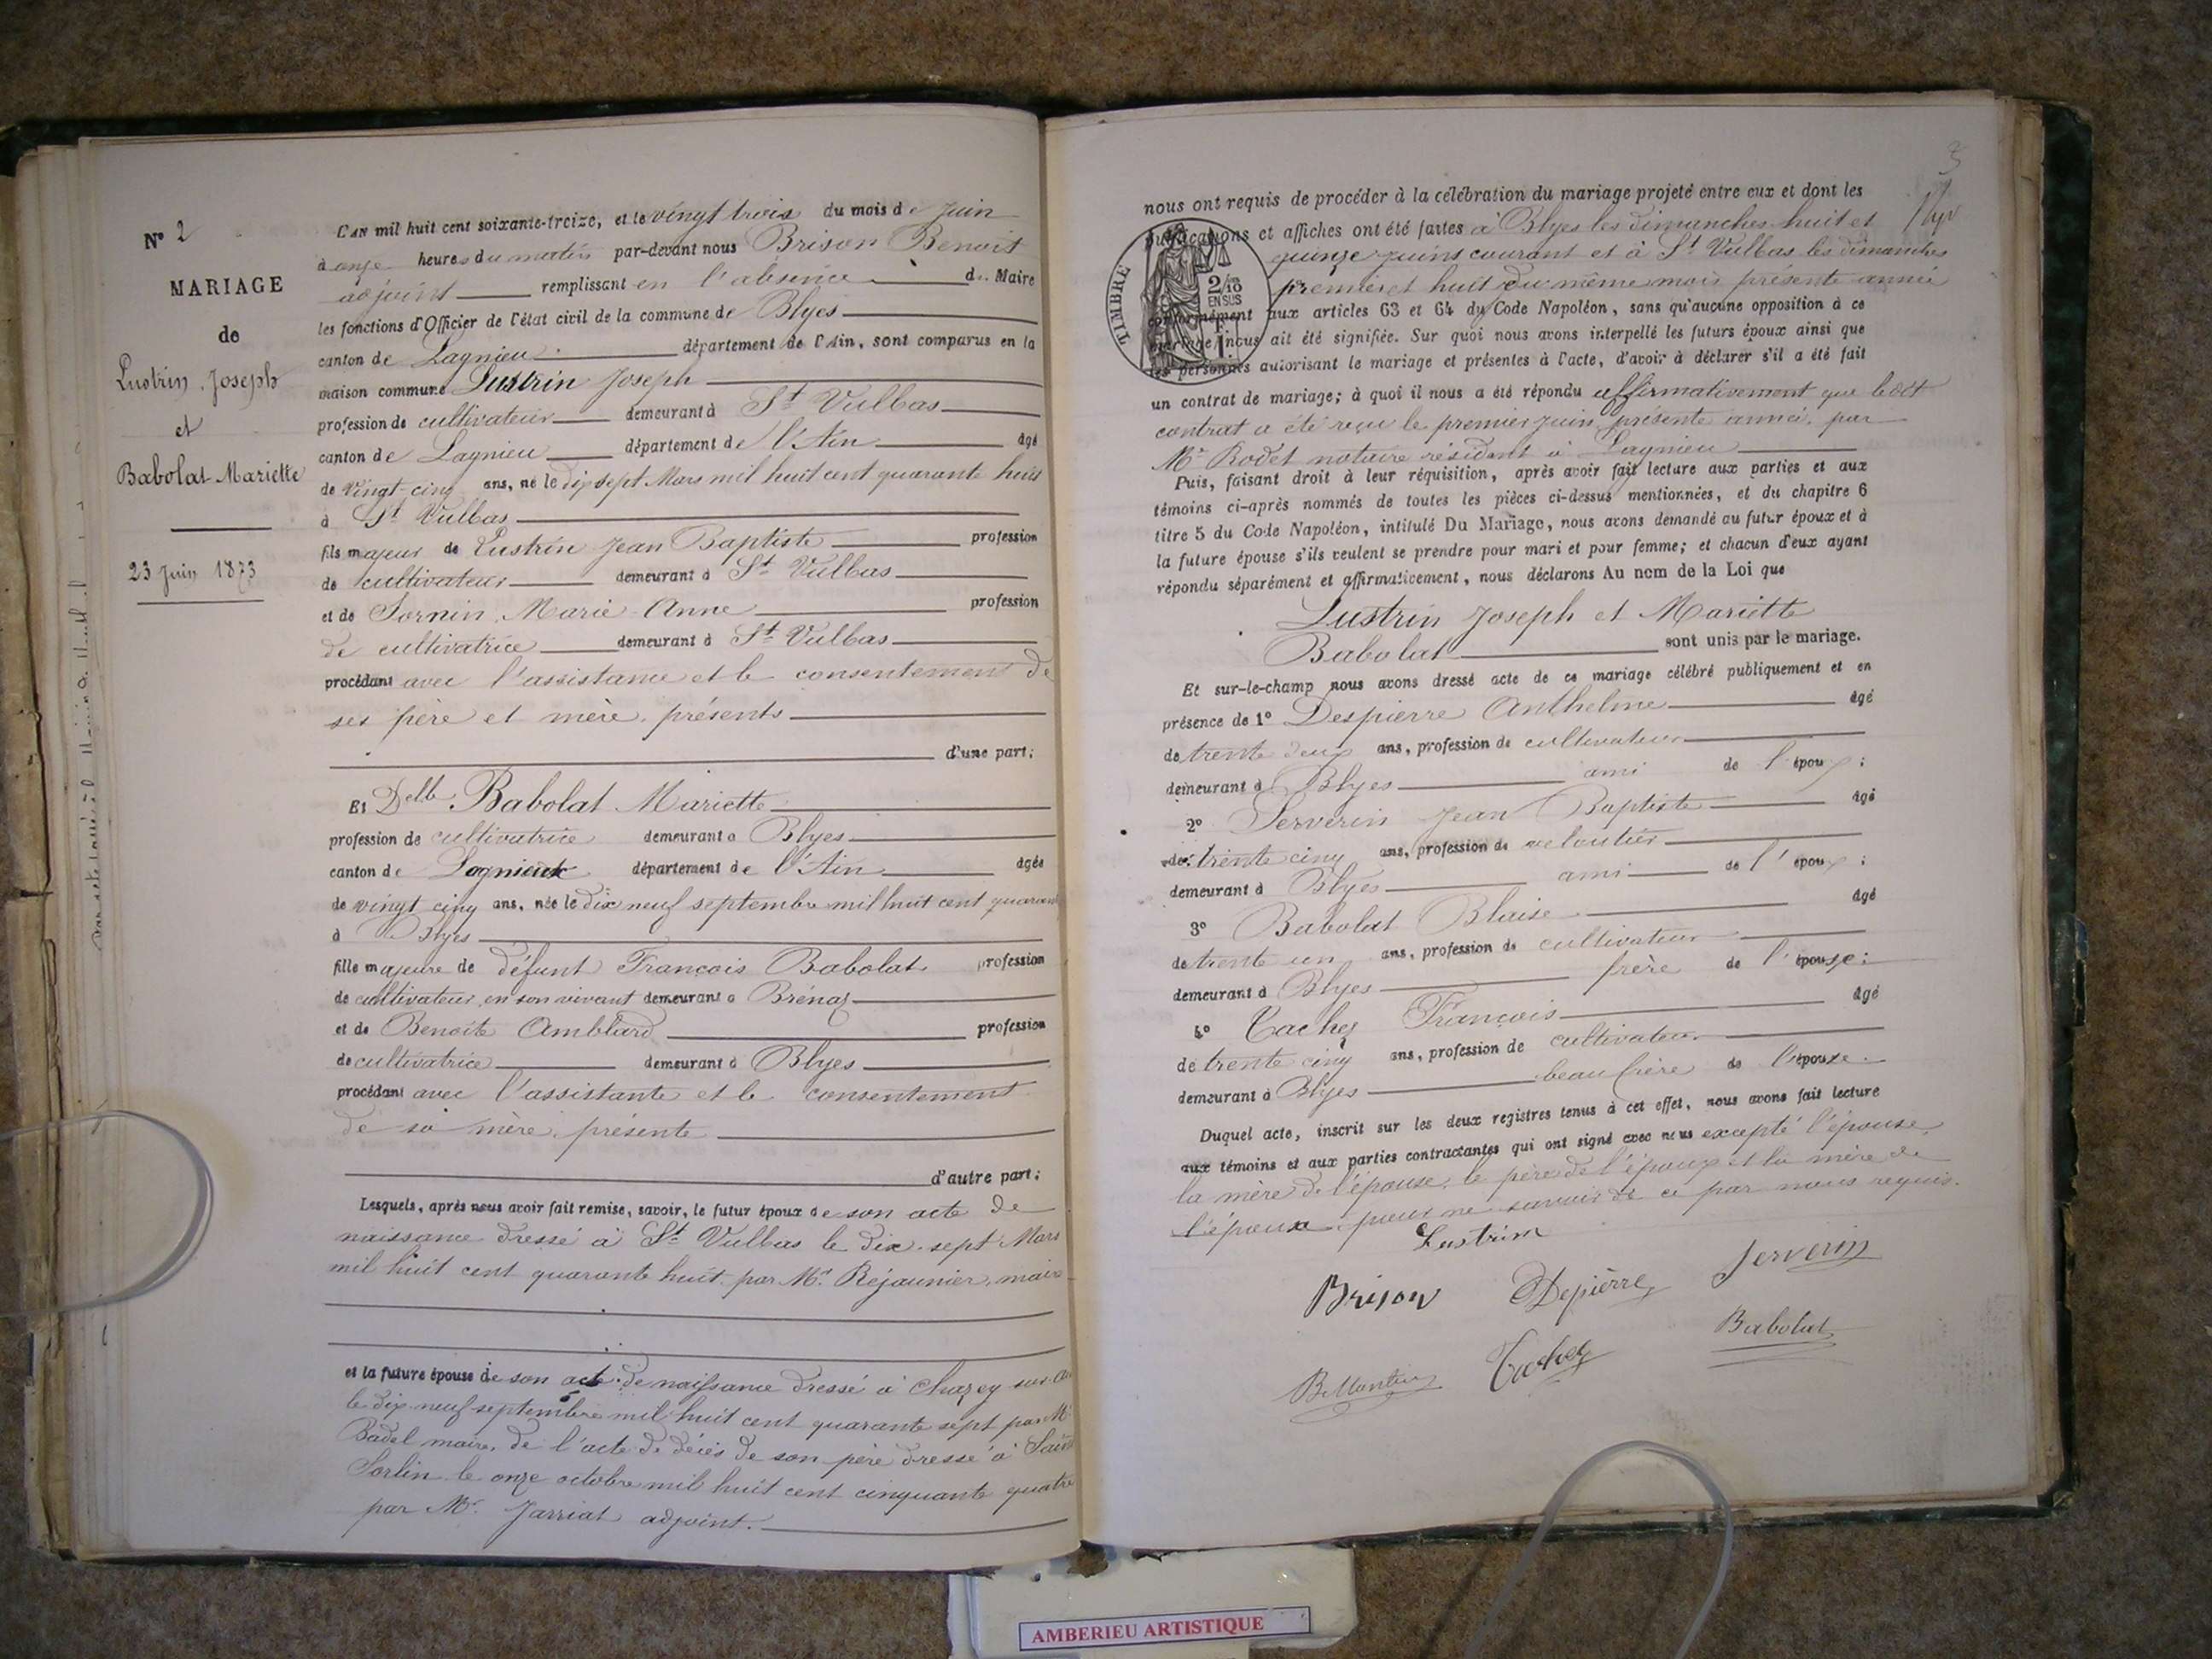 N° 2
MARIAGE
de
Lustrin Joseph
et
Babolat Mariette
23 Juin 1873
L'AN mil huit cent soixante-treize, et le vingt trois du mois de Juin
à onze heures du matin par-devant nous Brison Benoit
adjoint remplissant en l'absence du Maire
les fonctions d'Officier de l'état civil de la commune de Blyes
canton de Lagnieu département de l'Ain, sont comparus en la
maison commune Lustrin Joseph
profession de cultivateur demeurant à St Vulbas
canton de Lagnieu département de l'Ain âgé
de vingt-cinq ans, né le dix sept Mars mil huit cent quarante huit
à St Vulbas
fils majeur de Lustrin Jean Baptiste profession
de cultivateur demeurant à St Vulbas
et de Sornin Marie-Anne profession
de cultivatrice demeurant à St Vulbas
procédant avec l'assistance et le consentement de
ses père et mère présents
d'une part;
Et Delle Babolat Mariette
profession de cultivatrice demeurant à Blyes
canton de Lagnieu département de l'Ain âgée
de vingt cinq ans, née le dix neuf septembre mil huit cent quarant
à Blyes
fille majeure de défunt François Babolat profession
de cultivateur en son vivant demeurant à Brénaz
et de Benoite Amblard profession
de cultivatrice demeurant à Blyes
procédant avec l'assistante et le consentement
de sa mère présente
d'autre part;
Lesquels, après nous avoir fait remise, savoir, le futur époux de son acte de
naissance dressé à St Vulbas le dix-sept Mars
mil huit cent quarante huit par Mr Réjaunier, maire
et la future épouse de son acte de naissance dressé à Chazey sur Ain
le dix neuf septembre mil huit cent quarante sept par Mr
Badel maire, de l'acte de décès de son père dressé à Saint
Sorlin le onze octobre mil huit cent cinquante quatre
par Mr Jarriat adjoint.
3
nous ont requis de procéder à la célébration du mariage projeté entre eux et dont les
publications et affiches ont été faites à Blyes les dimanches huit et
quinze juins courant et à St Vulbas les dimanches
premier et huit du même mois présente année
conformément aux articles 63 et 64 du Code Napoléon, sans qu'aucune opposition à ce
mariage nous ait été signifiée. Sur quoi nous avons interpellé les futurs époux ainsi que
les personnes autorisant le mariage et présentes à l'acte, d'avoir à déclarer s'il a été fait
un contrat de mariage; à quoi il nous a été répondu affirmativement que ledit
contrat a été reçu le premier juin présente année par
Mr Rodet notaire résidant à Lagnieu
TIMBRE
2/10
EN SUS
1 F.
Puis, faisant droit à leur réquisition, après avoir fait lecture aux parties et aux
témoins ci-après nommés de toutes les pièces ci-dessus mentionnées, et du chapitre 6
titre 5 du Code Napoléon, intitulé Du Mariage, nous avons demandé au futur époux et à
la future épouse s'ils veulent se prendre pour mari et pour femme; et chacun d'eux ayant
répondu séparément et affirmativement, nous déclarons Au nom de la Loi que
Lustrin Joseph et Mariette
Babolat sont unis par le mariage.
Et sur-le-champ nous avons dressé acte de ce mariage célébré publiquement et en
présence de 1° Despierre Anthelme âgé
de trente deux ans, profession de cultivateur
demeurant à Blyes ami de l'époux;
2° Serverin Jean Baptiste âgé
de trente cinq ans, profession de veloutier
demeurant à Blyes ami de l'époux;
3° Babolat Blaise âgé
de trente un ans, profession de cultivateur
demeurant à Blyes frère de l'épouse;
4° Cachez François âgé
de trente cinq ans, profession de cultivateur
demeurant à Blyes beau frère de l'épouse.
Duquel acte, inscrit sur les deux registres tenus à cet effet, nous avons fait lecture
aux témoins et aux parties contractantes qui ont signé avec nous excepté l'épouse
la mère de l'épouse, le père de l'époux et la mère de
l'époux pour ne savoir de ce par nous requis.
Lustrin
Serverin
Brison
Depierre
Babolat
Cachez
AMBERIEU ARTISTIQUE